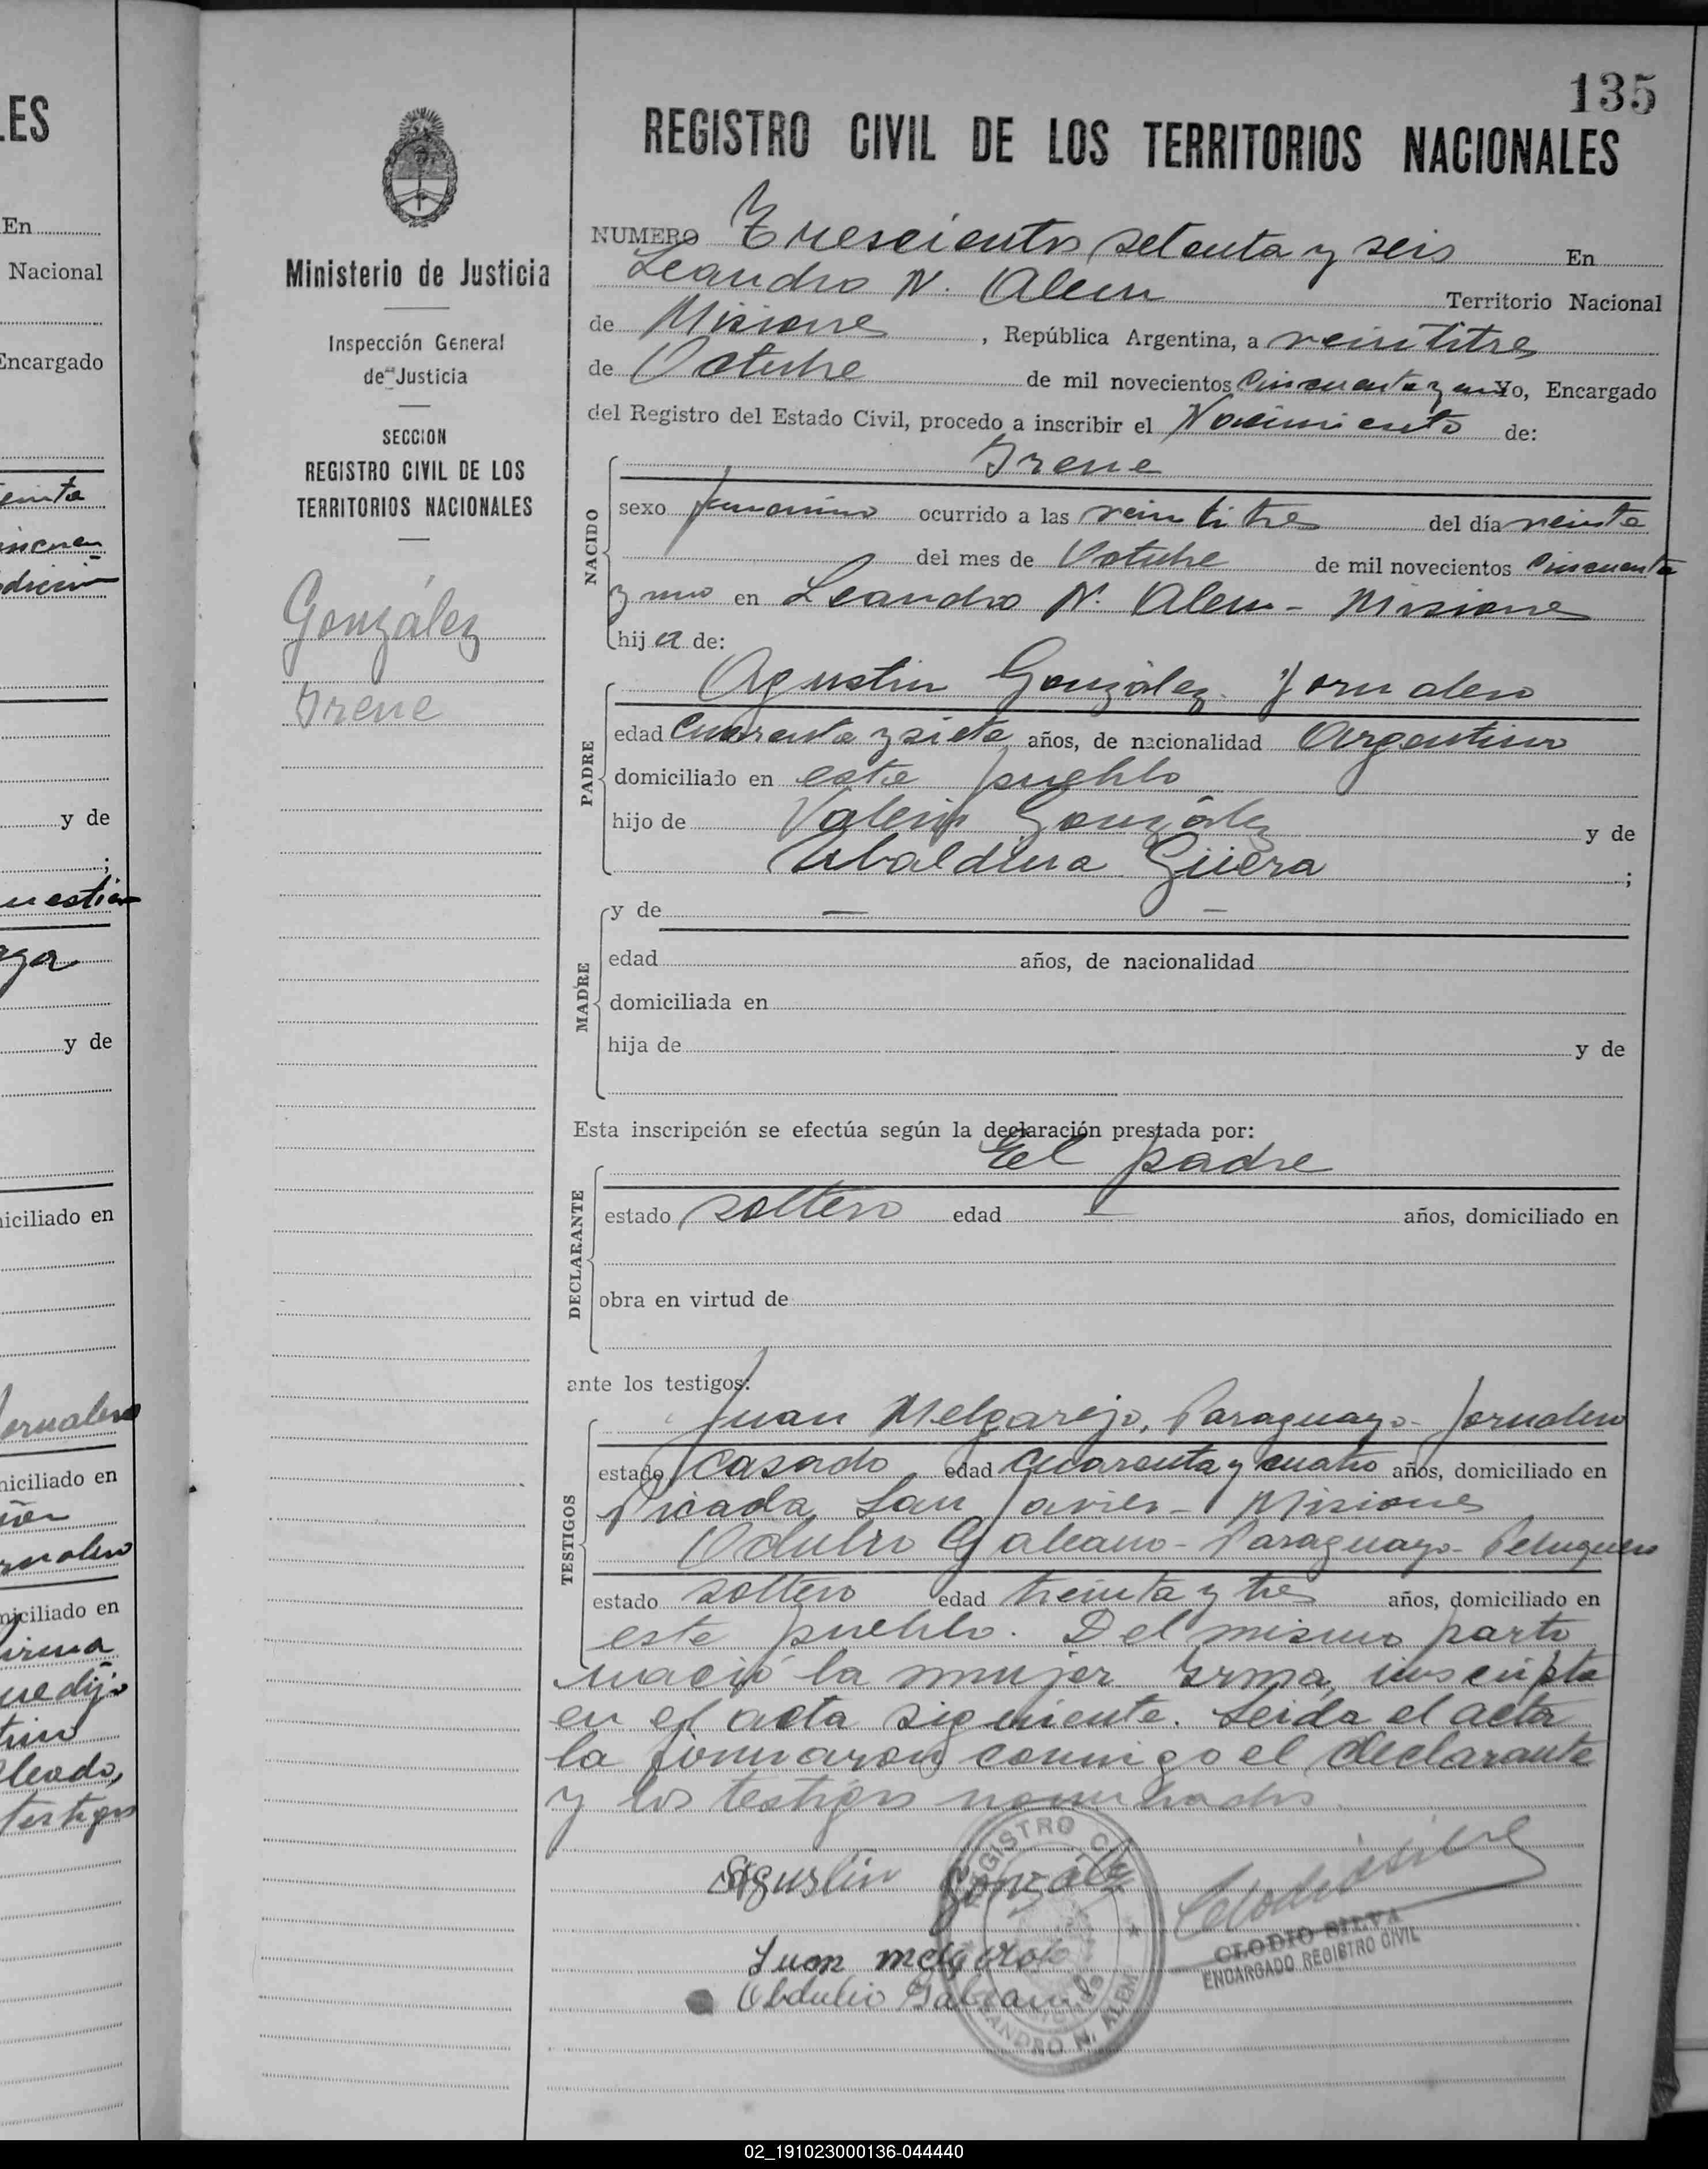 135
REGISTRO CIVIL DE LOS TERRITORIOS NACIONALES
Ministerio de Justicia
Inspección General
de Justicia
SECCION
REGISTRO CIVIL DE LOS
TERRITORIOS NACIONALES
González
Irene
NUMERO Trescientos setenta y seis En
Leandro N. Alem Territorio Nacional
de Misiones, República Argentina, a veintitres
de Octubre de mil novecientos cincuenta y uno Yo, Encargado
del Registro del Estado Civil, procedo a inscribir el Nacimiento de:
NACIDO
Irene
sexo femenino ocurrido a las veintitres del día veinte
del mes de Octubre de mil novecientos cincuenta
y uno en Leandro N. Alem - Misiones
hija de:
PADRE
Agustin González. Jornalero
edad cuarenta y siete años, de nacionalidad Argentino
domiciliado en este pueblo
hijo de Valerio González y de
Ubaldina Güera;
MADRE
y de — —
edad años, de nacionalidad
domiciliada en
hija de y de
Esta inscripción se efectúa según la declaración prestada por:
DECLARANTE
El padre
estado soltero edad — años, domiciliado en
obra en virtud de
ante los testigos:
TESTIGOS
Juan Melgarejo, Paraguayo - Jornalero
estado casado edad cuarenta y cuatro años, domiciliado en
Picada San Javier - Misiones
Odulio Galeano - Paraguayo - Peluquero
estado soltero edad treinta y tres años, domiciliado en
este pueblo. Del mismo parto
nació la mujer Irma, inscripta
en el acta siguiente. Leida el acta
la firmaron conmigo el declarante
y los testigos nombrados.
Agustin González
Juan melgarejo
Obdulio Galeano
REGISTRO CIVIL
LEANDRO N. ALEM
CLODIO SILVA
ENCARGADO REGISTRO CIVIL
ES
En
Nacional
Encargado
y de
y de
iciliado en
Jornalero
niciliado en
miciliado en
firma
que dijo
testigos
02_191023000136-044440